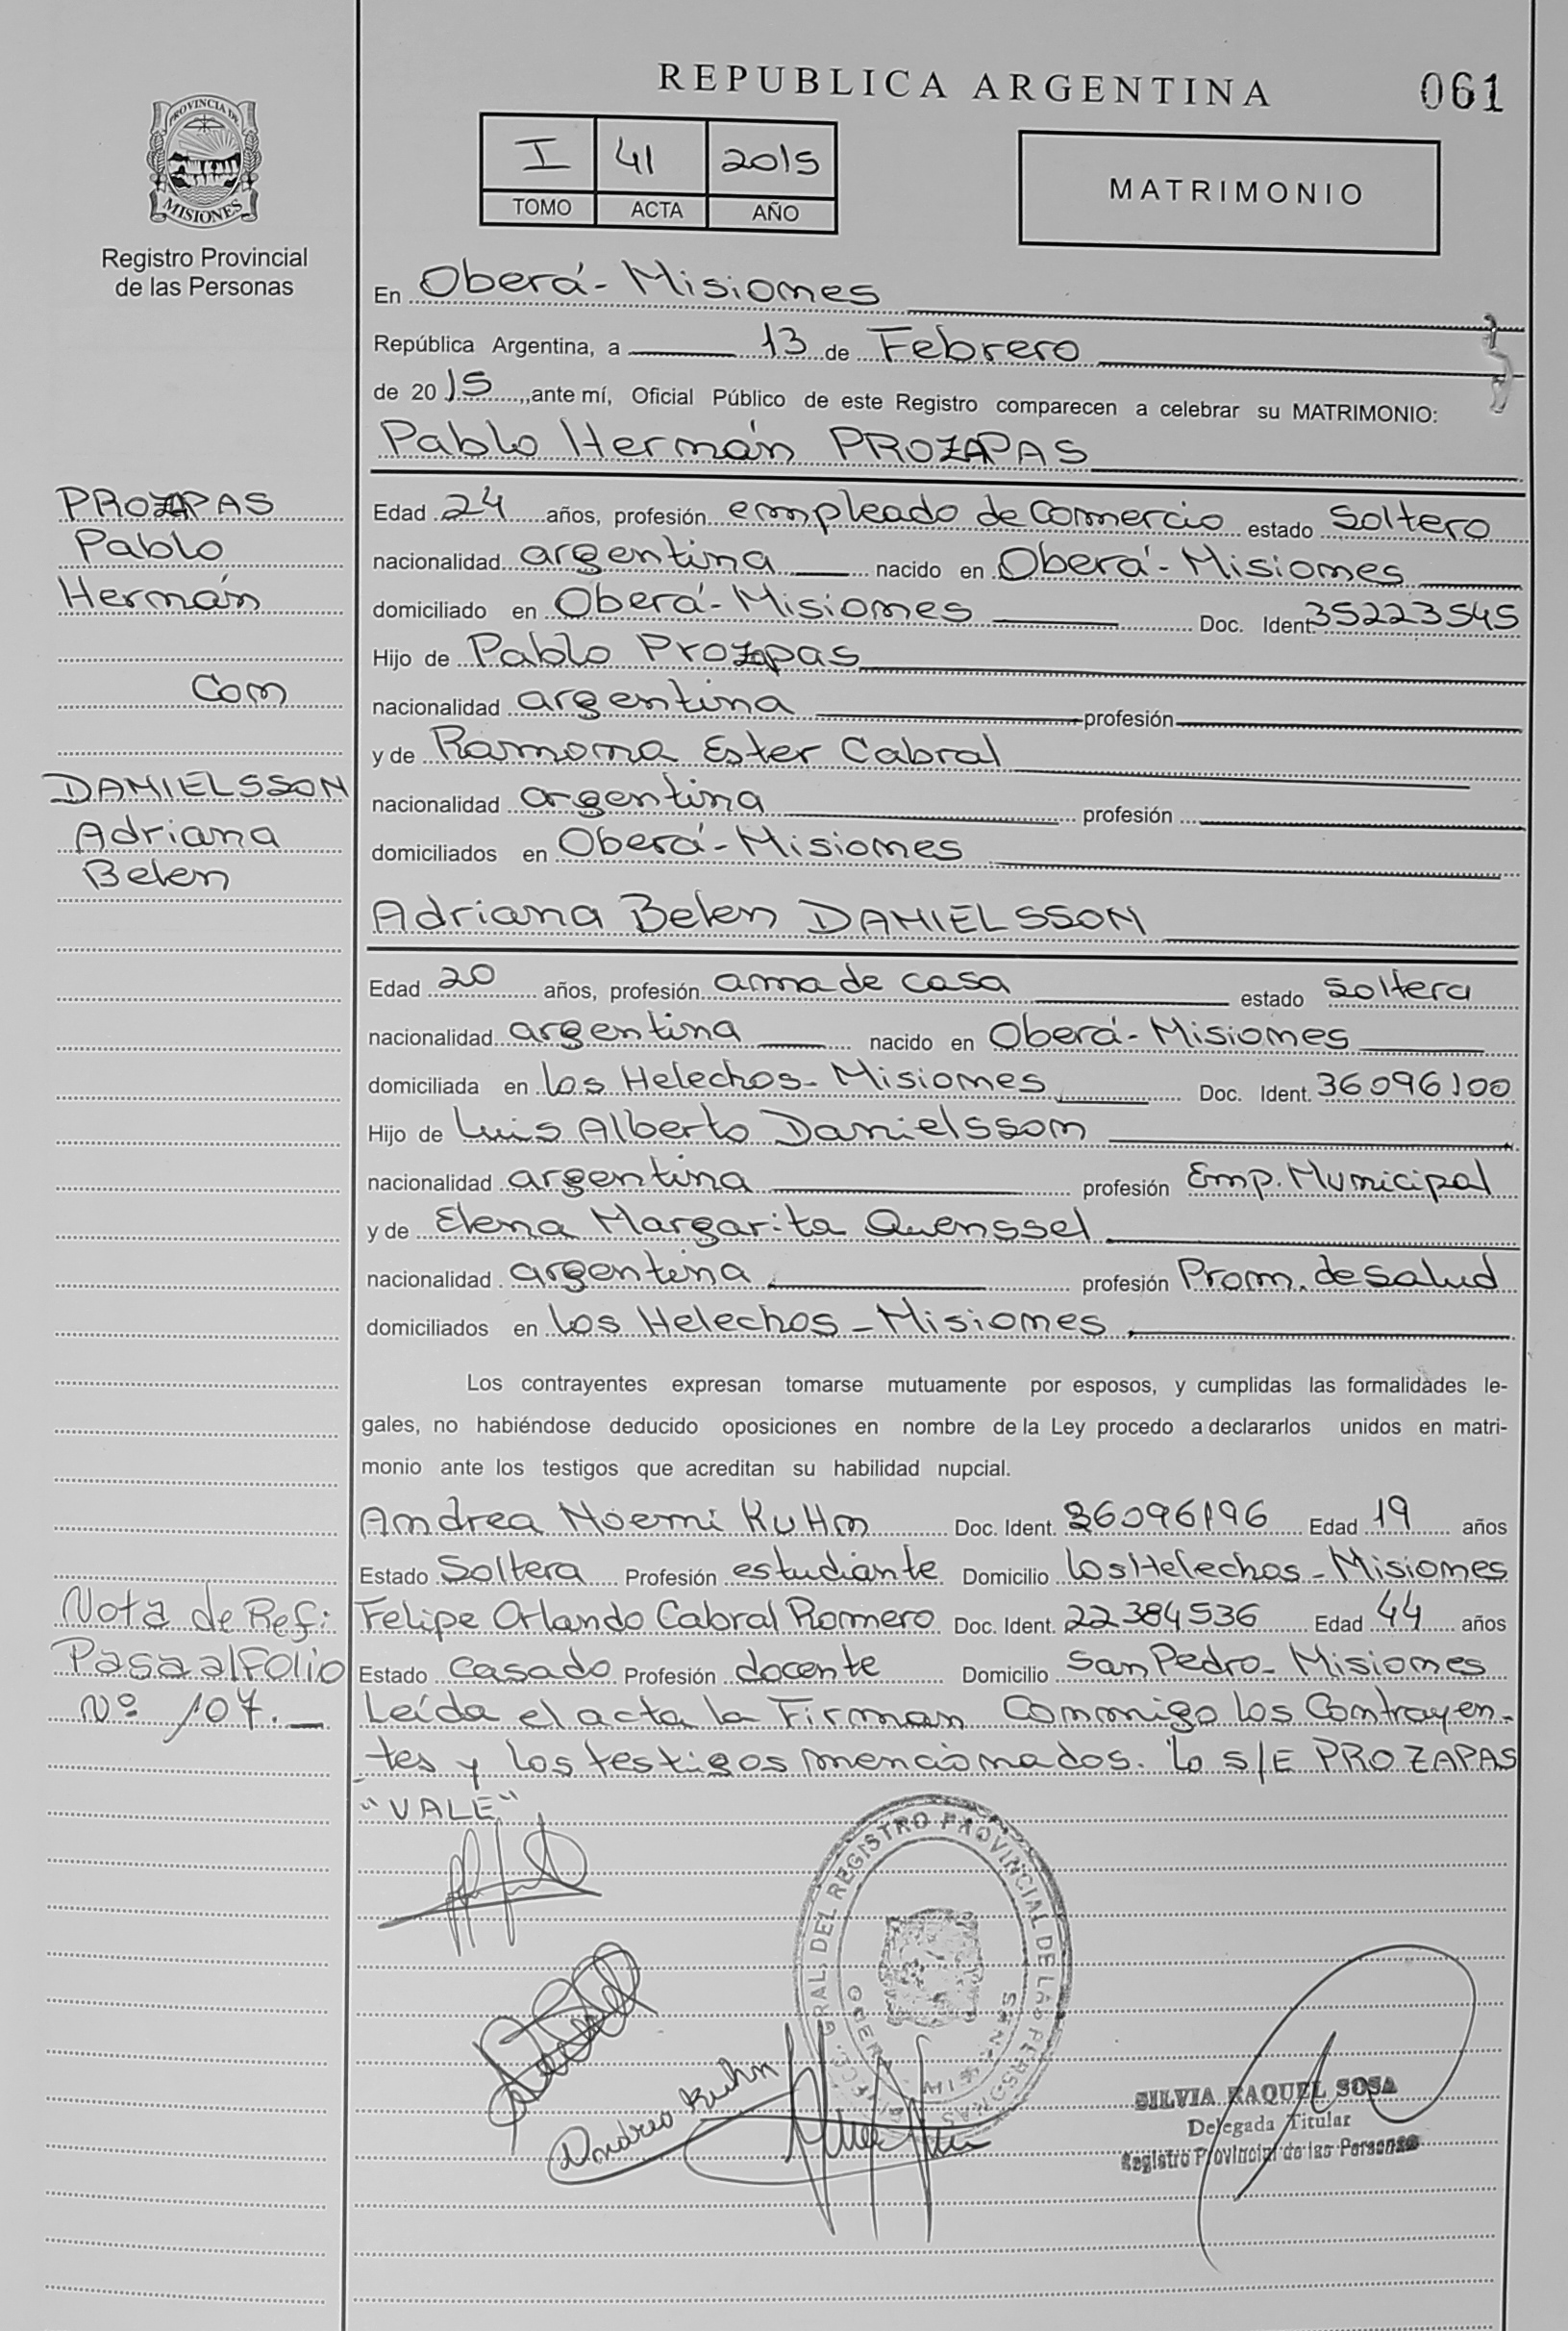 REPUBLICA ARGENTINA
061
PROVINCIA DE
MISIONES
Registro Provincial
de las Personas
I 41 2015
TOMO ACTA AÑO
MATRIMONIO
En Oberá - Misiones
República Argentina, a 13 de Febrero
de 2015, ante mí, Oficial Público de este Registro comparecen a celebrar su MATRIMONIO:
Pablo Hernán PROZAPAS
PROZAPAS
Pablo
Hernán
Con
DANIELSSON
Adriana
Belen
Edad 24 años, profesión empleado de Comercio estado Soltero
nacionalidad argentina nacido en Oberá - Misiones
domiciliado en Oberá - Misiones Doc. Ident. 35223545
Hijo de Pablo Prozapas
nacionalidad argentina profesión
y de Ramona Ester Cabral
nacionalidad argentina profesión
domiciliados en Oberá - Misiones
Adriana Belen DANIELSSON
Edad 20 años, profesión ama de casa estado Soltera
nacionalidad argentina nacido en Oberá - Misiones
domiciliada en Los Helechos - Misiones Doc. Ident. 36096100
Hijo de Luis Alberto Danielsson
nacionalidad argentina profesión Emp. Municipal
y de Elena Margarita Quenssel
nacionalidad argentina profesión Prom. de Salud
domiciliados en Los Helechos - Misiones
Los contrayentes expresan tomarse mutuamente por esposos, y cumplidas las formalidades le-
gales, no habiéndose deducido oposiciones en nombre de la Ley procedo a declararlos unidos en matri-
monio ante los testigos que acreditan su habilidad nupcial.
Andrea Noemi KuHn Doc. Ident. 36096196 Edad 19 años
Estado Soltera Profesión estudiante Domicilio Los Helechos - Misiones
Felipe Orlando Cabral Romero Doc. Ident. 22384536 Edad 44 años
Estado Casado Profesión docente Domicilio San Pedro - Misiones
Leída el acta la Firman Conmigo los Contrayen-
tes y los testigos mencionados. Lo S/E PROZAPAS
"VALE"
Nota de Ref:
Pasa al Folio
Nº 107.-
GRAL. DEL REGISTRO PROVINCIAL DE LAS PERSONAS
Andrea Kuhn
SILVIA RAQUEL SOSA
Delegada Titular
Registro Provincial de las Personas